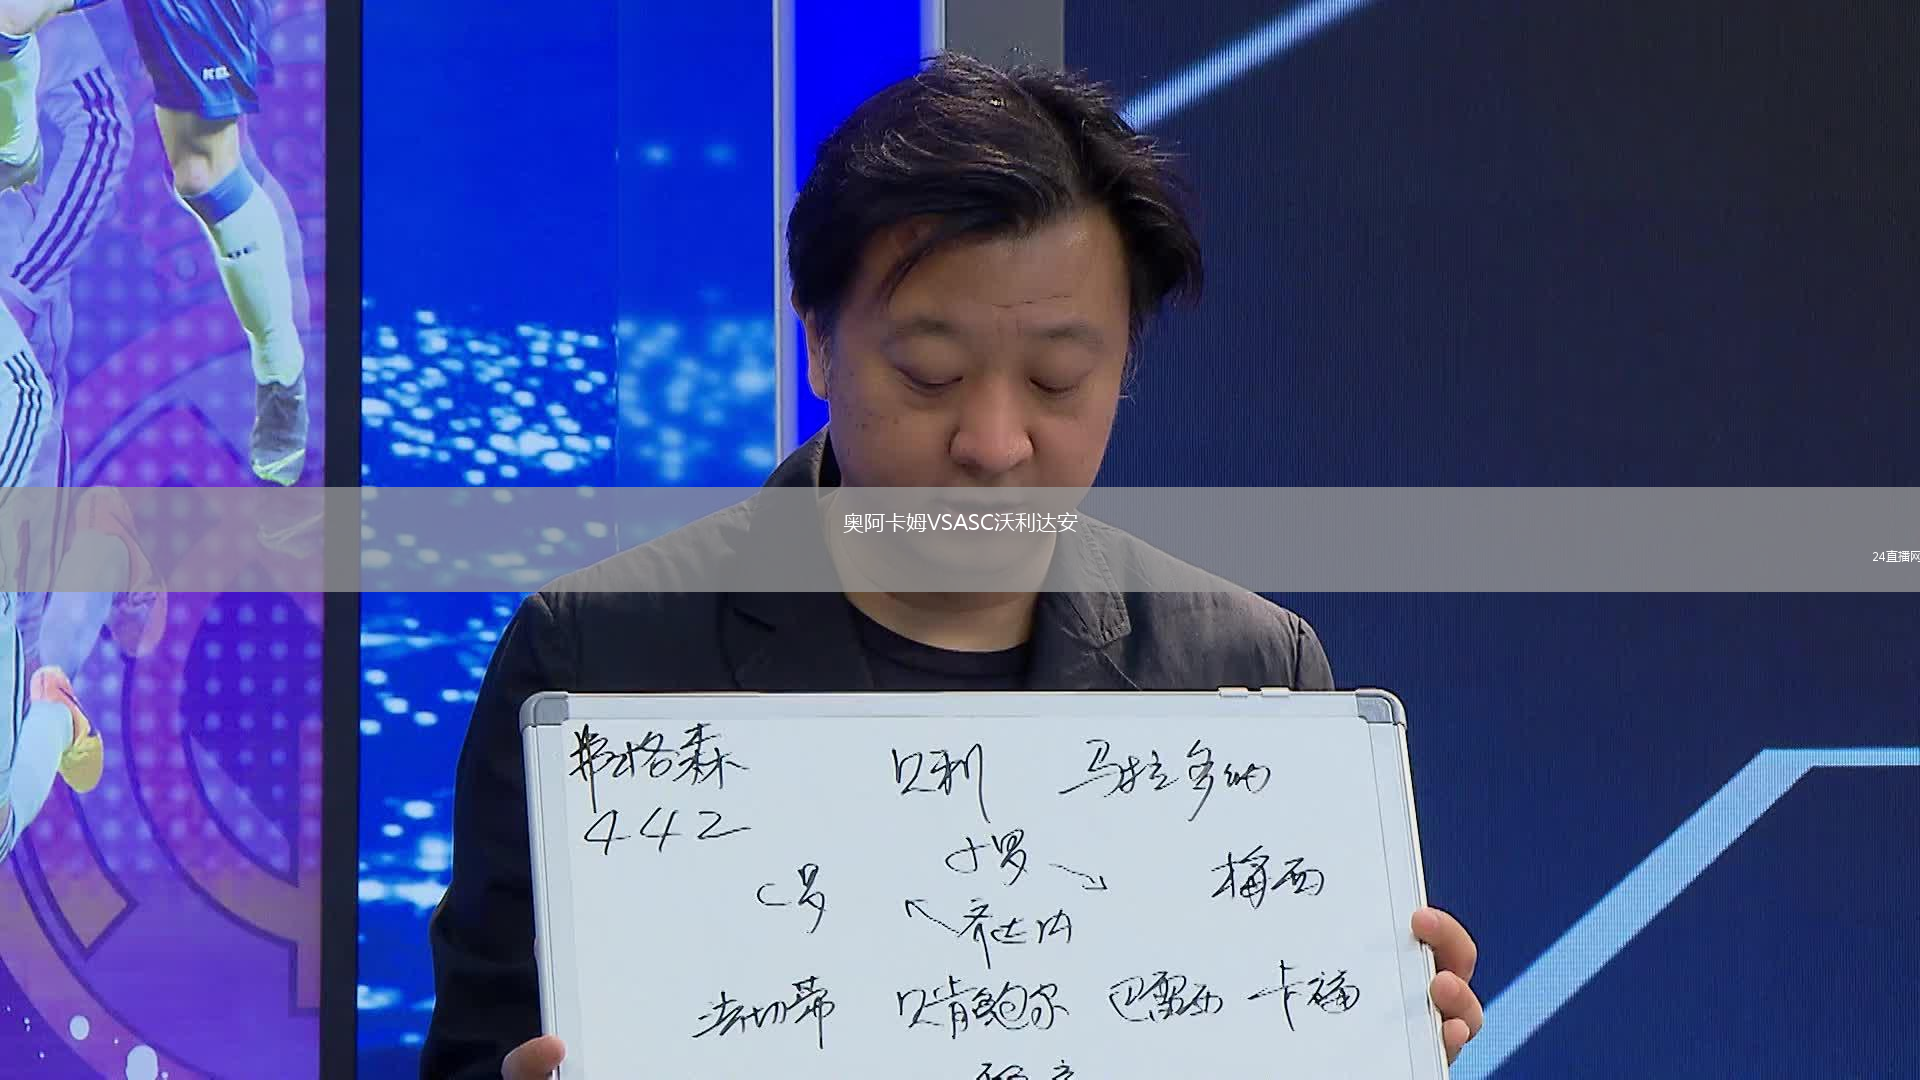 奥阿卡姆VSASC沃利达安
24直播网
弗格森 贝利 马拉多纳
442
小罗
C罗 梅西
齐达内
法切蒂 贝肯鲍尔 巴雷西 卡福